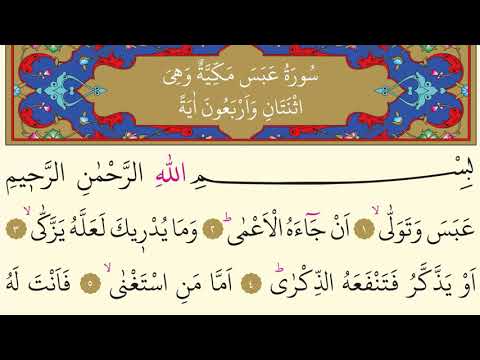 سُورَةُ عَبَسَ مَكِّيَّةٌ وَهِىَ
اثْنَتَانِ وَاَرْبَعُونَ اٰيَةً
بِسْمِ اللّٰهِ الرَّحْمٰنِ الرَّحٖيمِ
عَبَسَ وَتَوَلّٰىۙ ١ اَنْ جَٓاءَهُ الْاَعْمٰىۜ ٢ وَمَا يُدْرٖيكَ لَعَلَّهُ يَزَّكّٰىۙ ٣
اَوْ يَذَّكَّرُ فَتَنْفَعَهُ الذِّكْرٰىۜ ٤ اَمَّا مَنِ اسْتَغْنٰىۙ ٥ فَاَنْتَ لَهُ